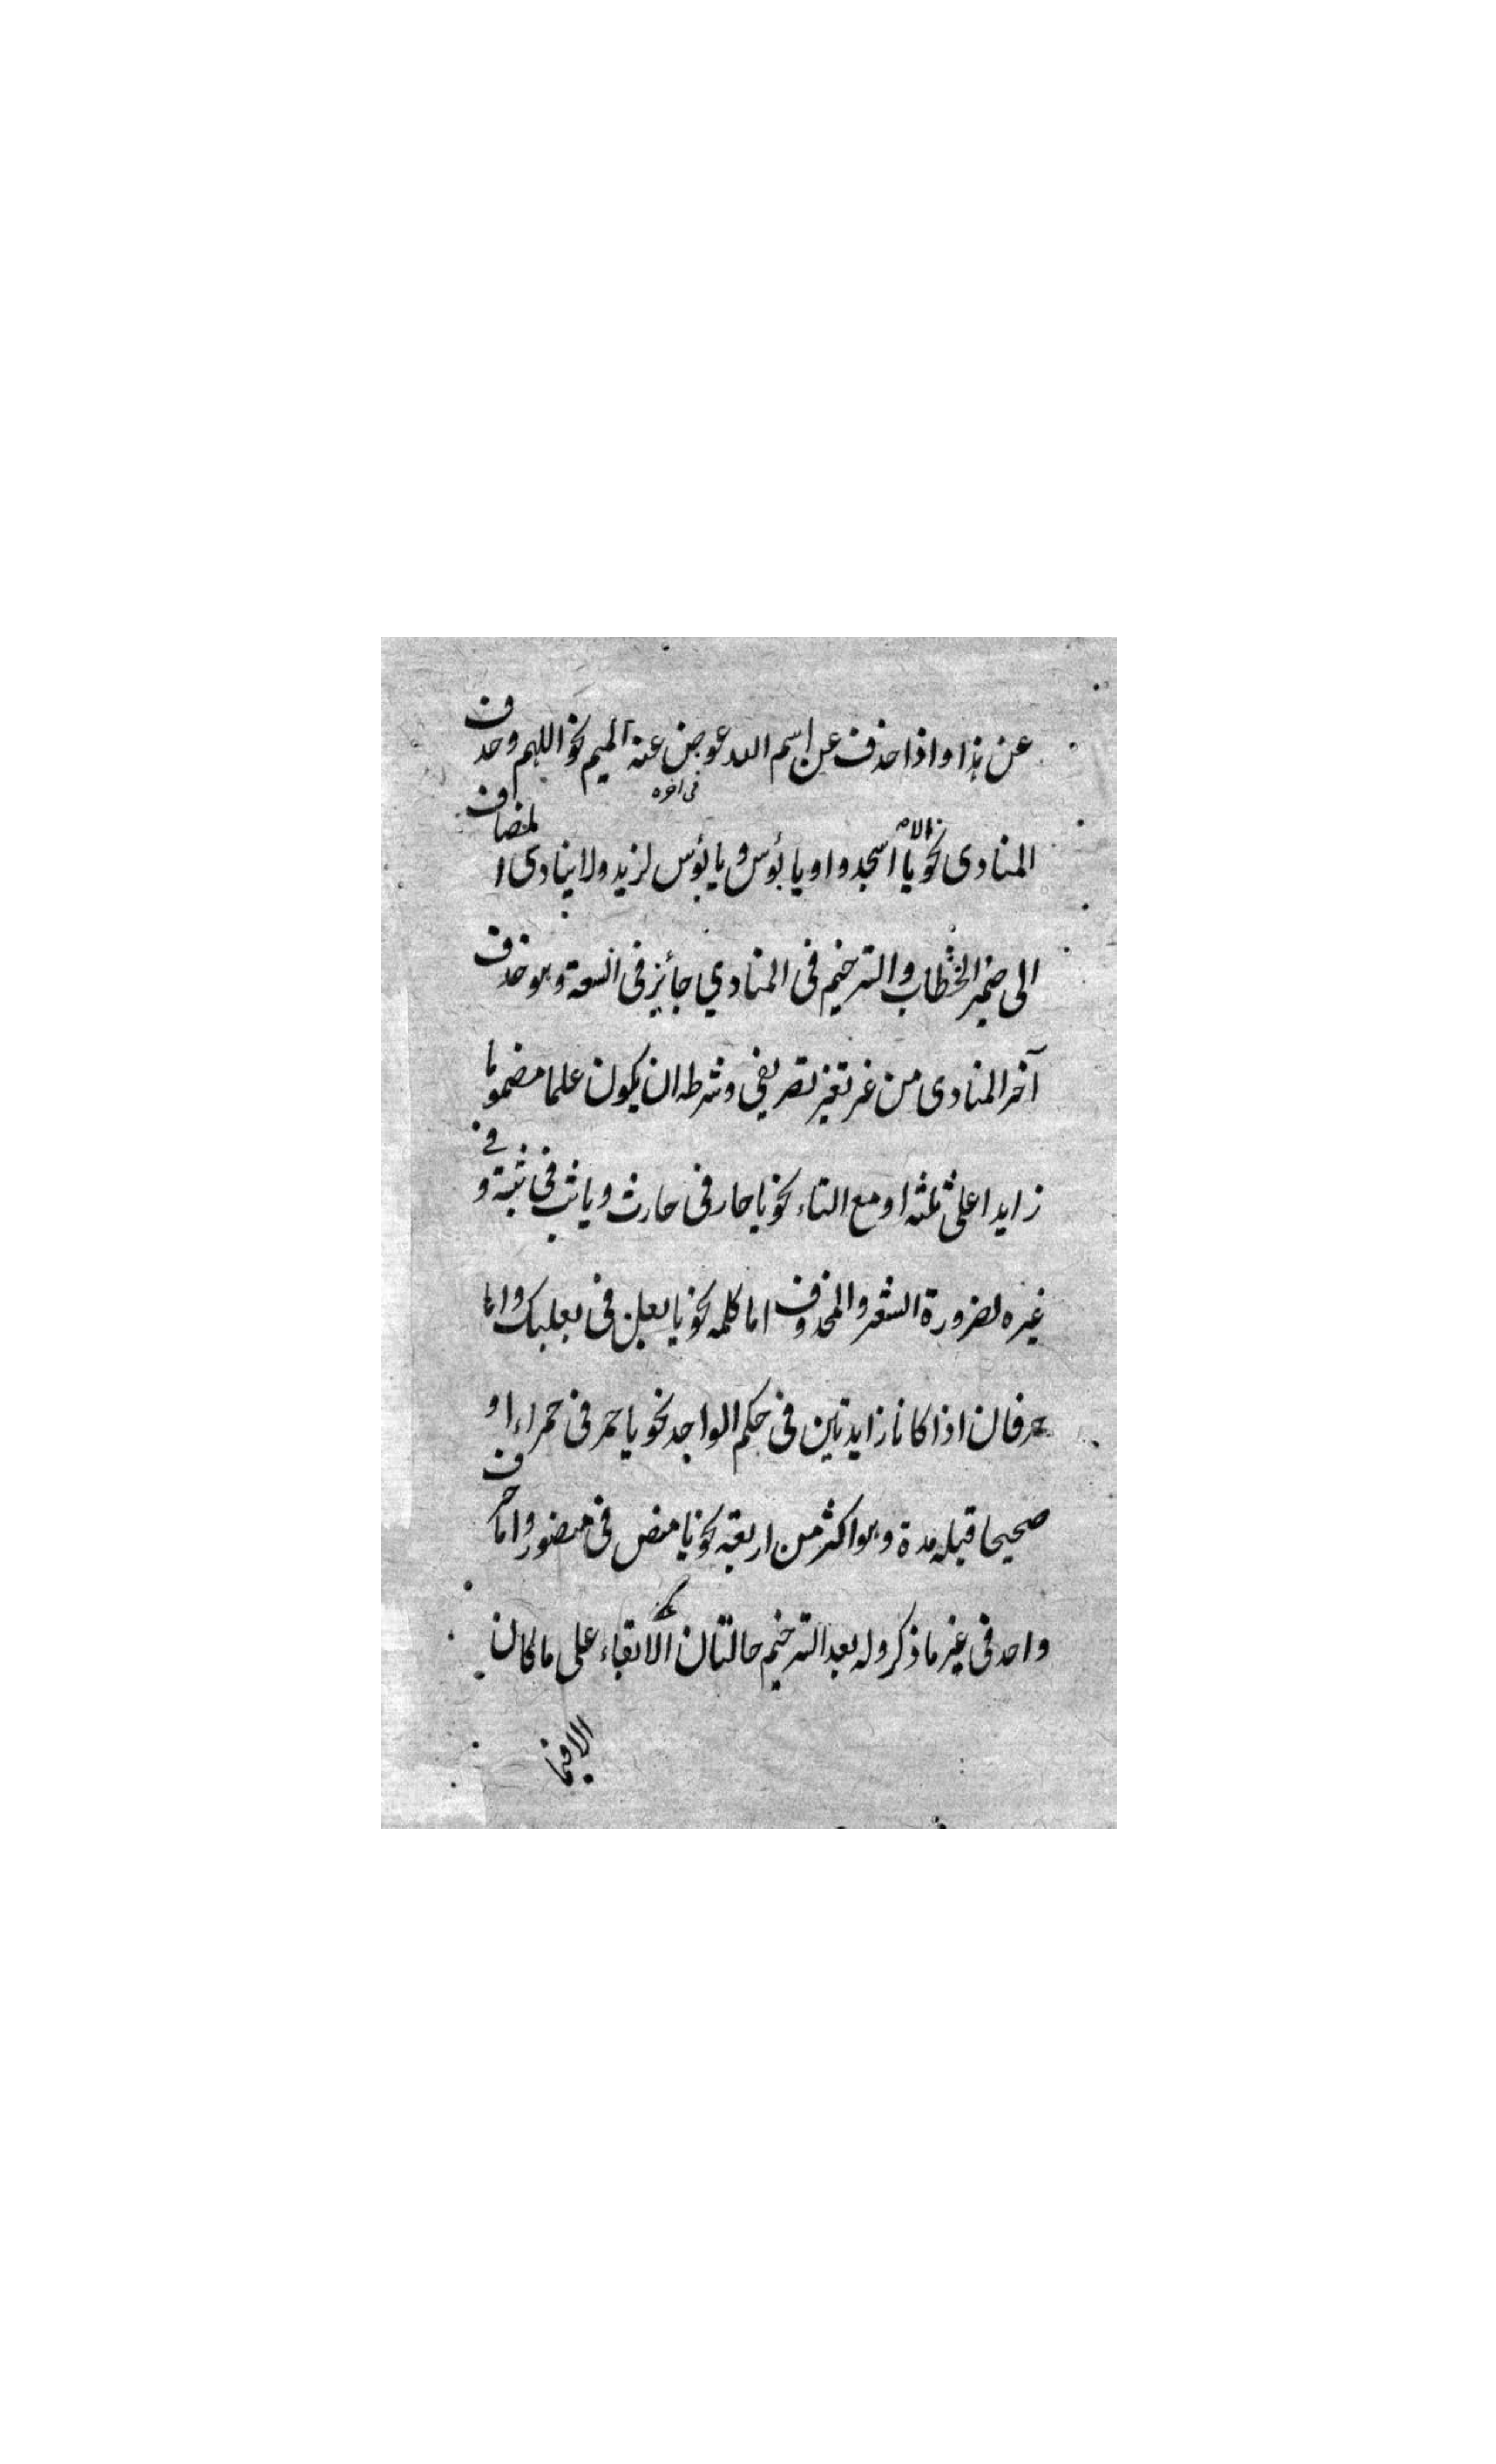 عن هذا واذا حذف عن اسم الله عوض عنه الميم نحو اللهم وحذف
فى اخره
المنادى نحو الا يا اسجدوا ويا بؤس ويا بؤس لزيد ولا ينادى المضاف
الى ضمير الخطاب والترخيم فى المنادي جائز فى السعة وهو حذف
آخر المنادى من غير تغير تصريفي وشرطه ان يكون علما مضموما
زايدا على ثلثه او مع التاء نحو يا حار فى حارث ويا ثب فى ثبة و فى
غيره لضرورة الشعر والمحذوف اما كلمه نحو يا بعل فى بعلبك واما
حرفان اذا كانا زايدتين فى حكم الواحد نحو يا حمر فى حمراء او
صحيحا قبله مدة وهو اكثر من اربعة نحو يا منص فى منصور واما حرف
واحد فى غير ما ذكر وله بعد الترخيم حالتان الابقاء على ما كان
الا فيما